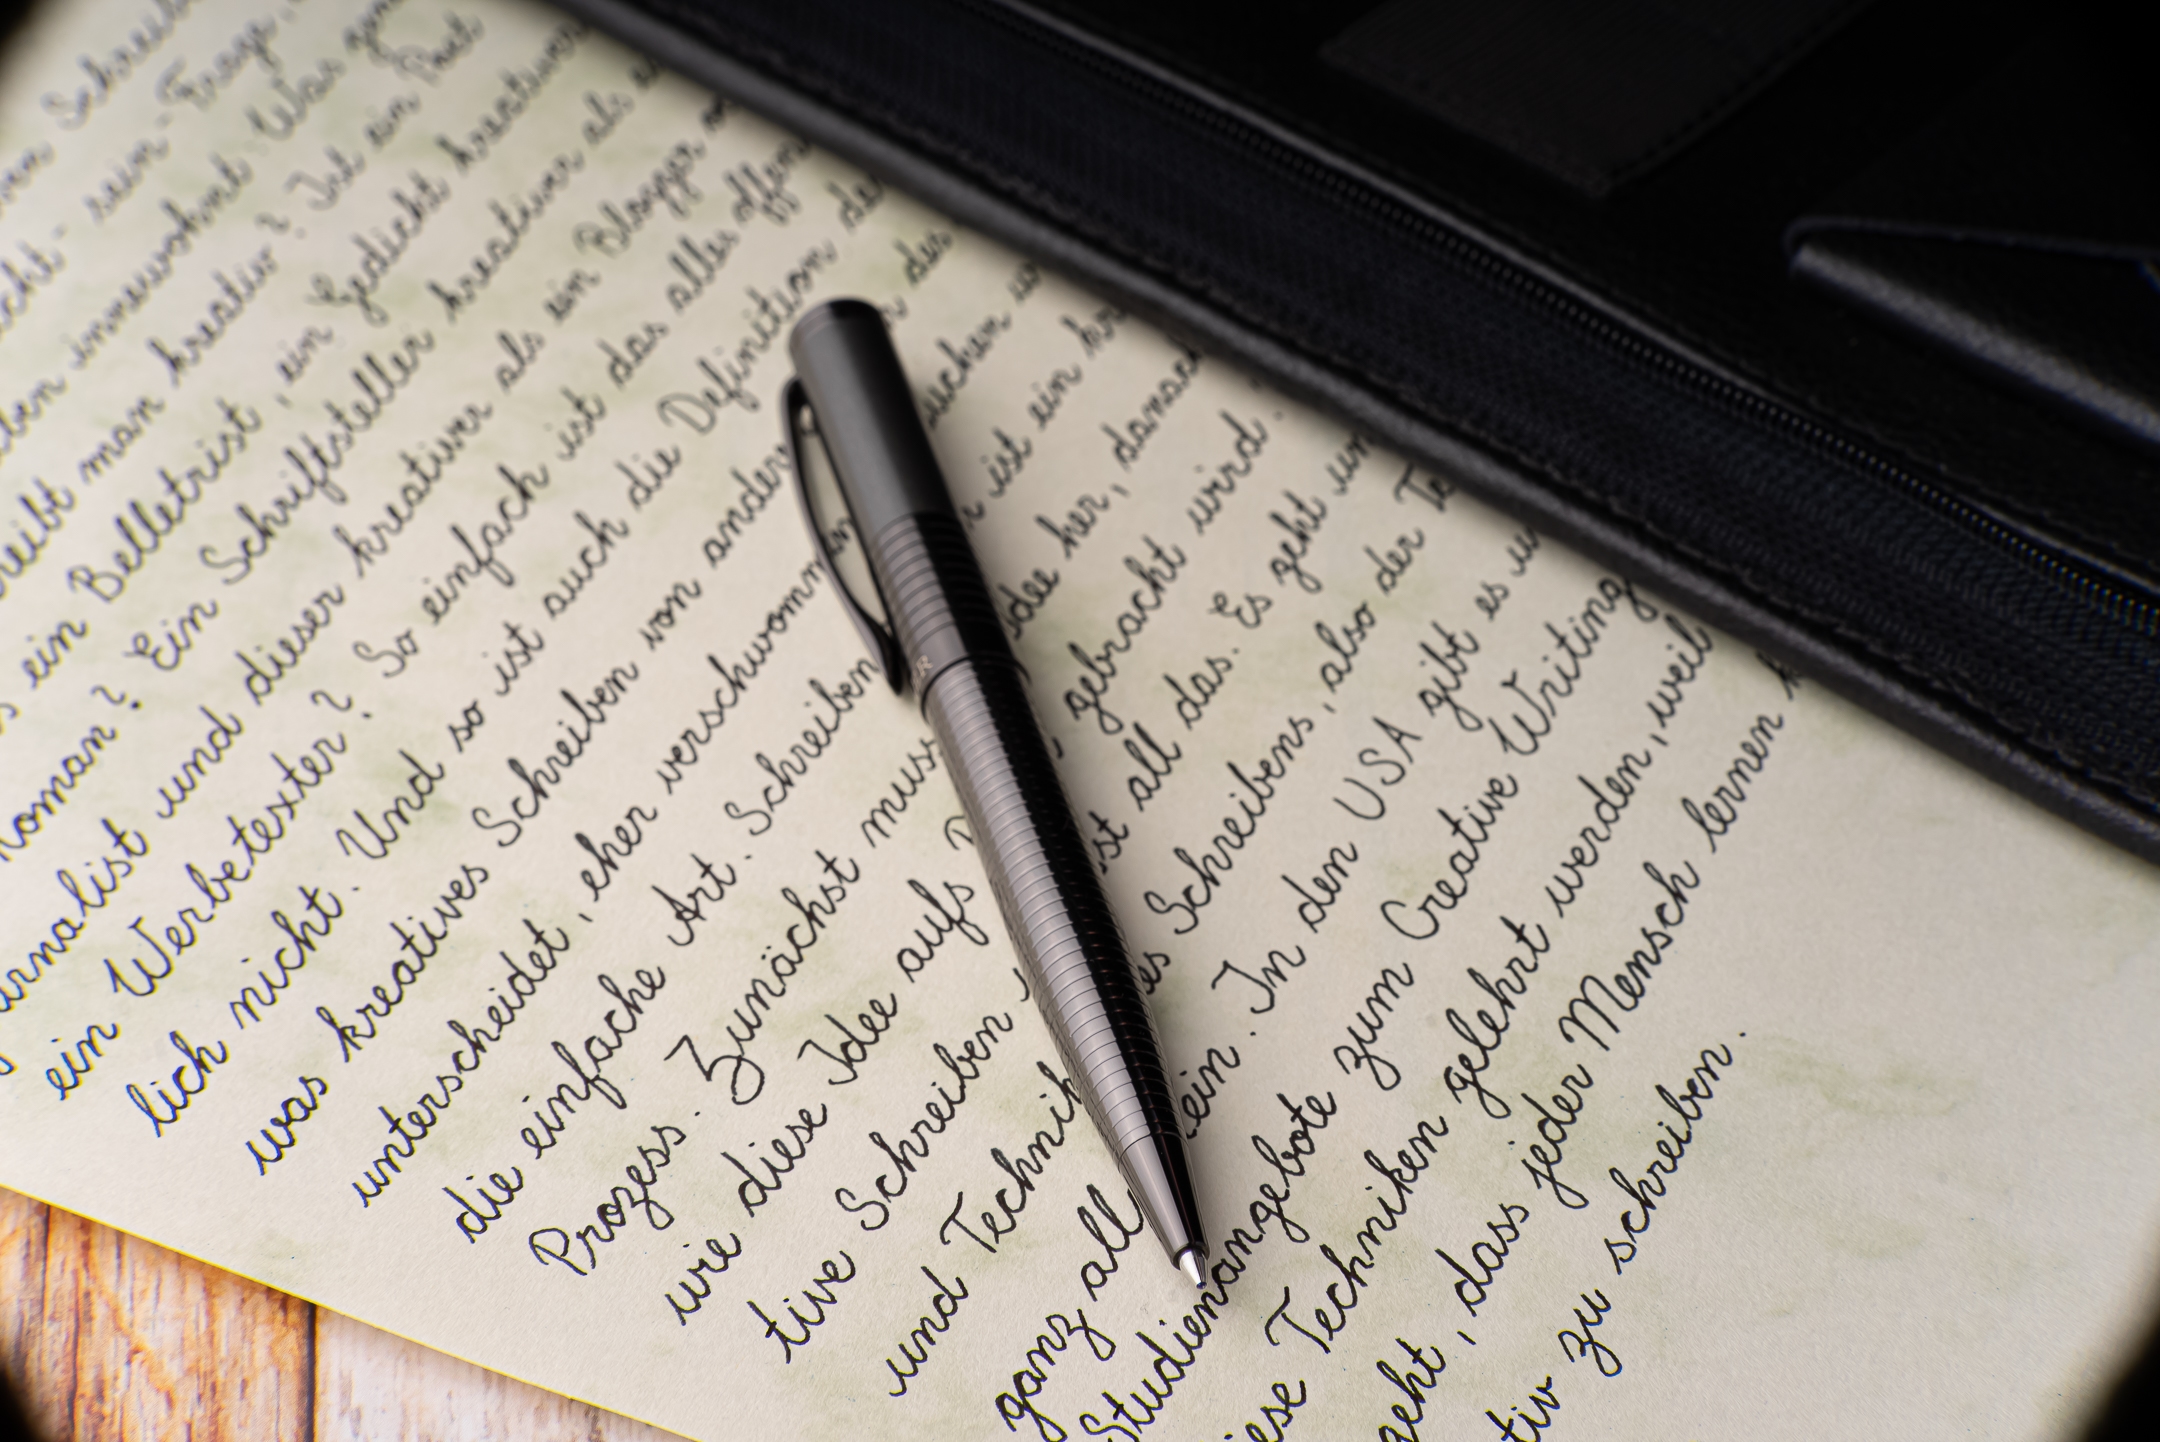 Schreib
cht - sein - Frage,
ben innewohnt. Was
reibt man kreativ? Ist ein Poet
ein Belletrist, ein Gedicht kreativer
Roman? Ein Schriftsteller kreativer als
urnalist und dieser kreativer als ein Blogger
ein Werbetexter? So einfach ist das alles offen
lich nicht. Und so ist auch die Definition de
was kreatives Schreiben von andere des
unterscheidet, eher verschwomm suchen
die einfache Art. Schreiben ist ein kr
Prozess. Zunächst muss Idee her, danach
wie diese Idee aufs gebracht wird.
tive Schreiben ist all das. Es geht um
und Technik es Schreibens, also der Te
ganz all ein. In den USA gibt es
Studienangebote zum Creative Writing
iese Techniken gelehrt werden, weil
geht, dass jeder Mensch lernen
tiv zu schreiben.